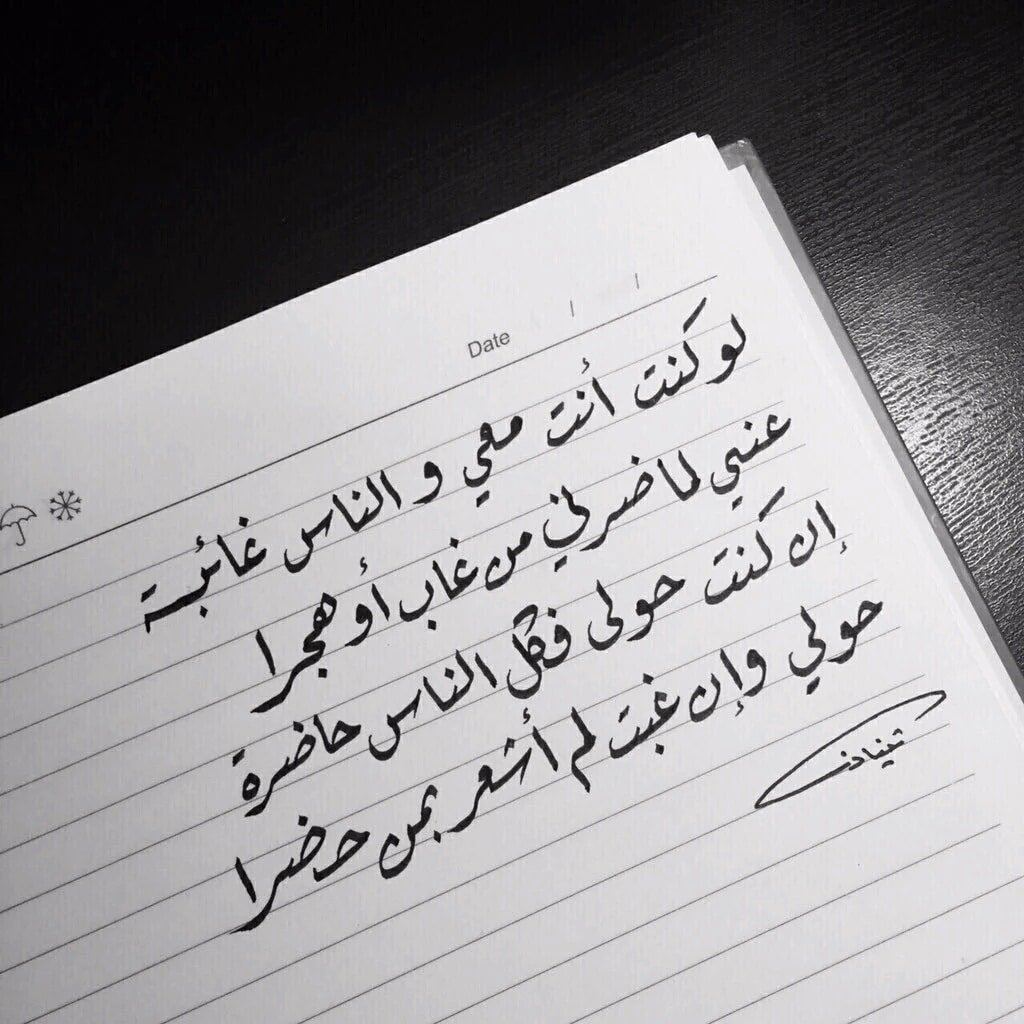 Date / /
لو كنت أنت معي و الناس غائبة
عني لما ضرني من غاب أو هجرا
إن كنت حولى فكل الناس حاضرة
حولي وإن غبت لم أشعر بمن حضرا